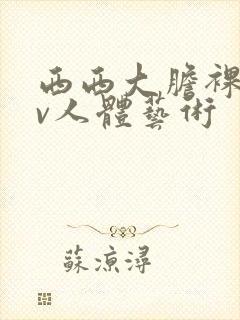 西西大膽裸
v人體藝術
蘇涼潯